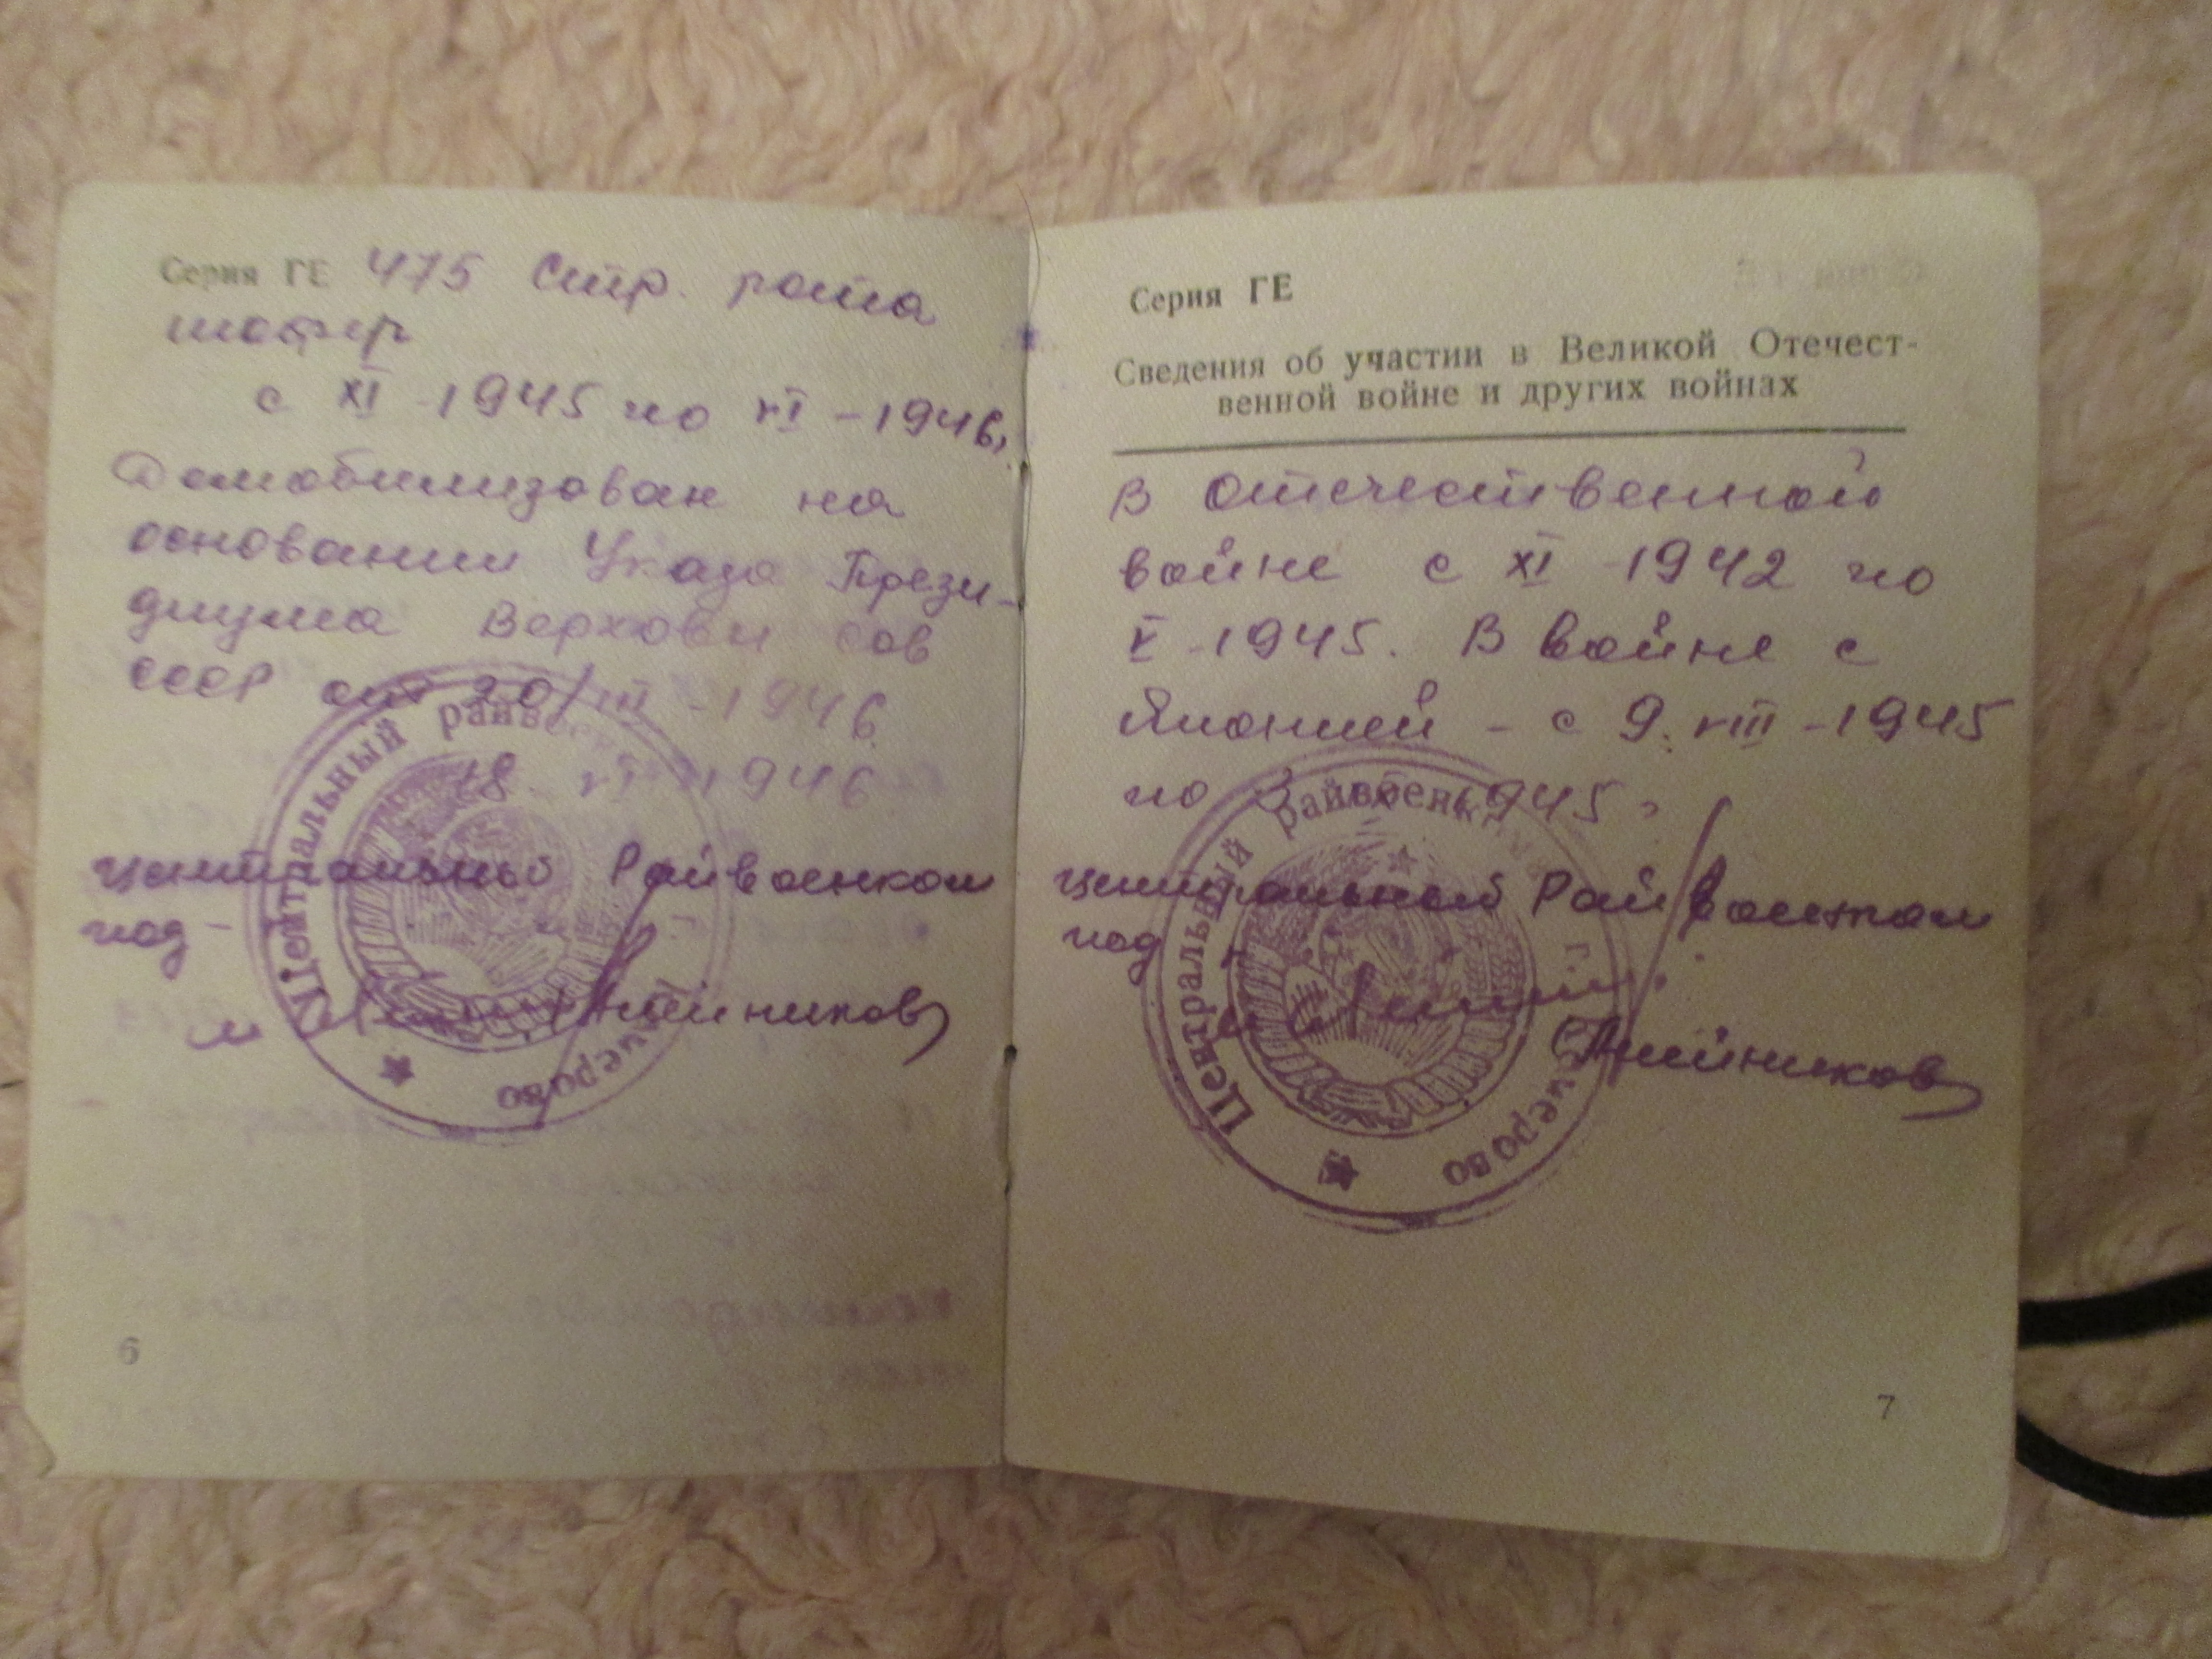 Серия ГЕ 475 Стр. рота
шофер
с XI - 1945 по VI - 1946г.
Демобилизован на
основании Указа Прези-
диума Верховн Сов
СССР от 20/III - 1946
18. VI 1946
Центральный Райвоенком
под-
Центральный райвоенкомат
Кемерово
6
Серия ГЕ
Сведения об участии в Великой Отечест-
венной войне и других войнах
В Отечественной
войне с XI - 1942 по
V - 1945. В войне с
Японией - с 9. VIII - 1945
по 3 IX 1945г
Центральный Райвоенком
под
Центральный райвоенкомат
Кемерово
7